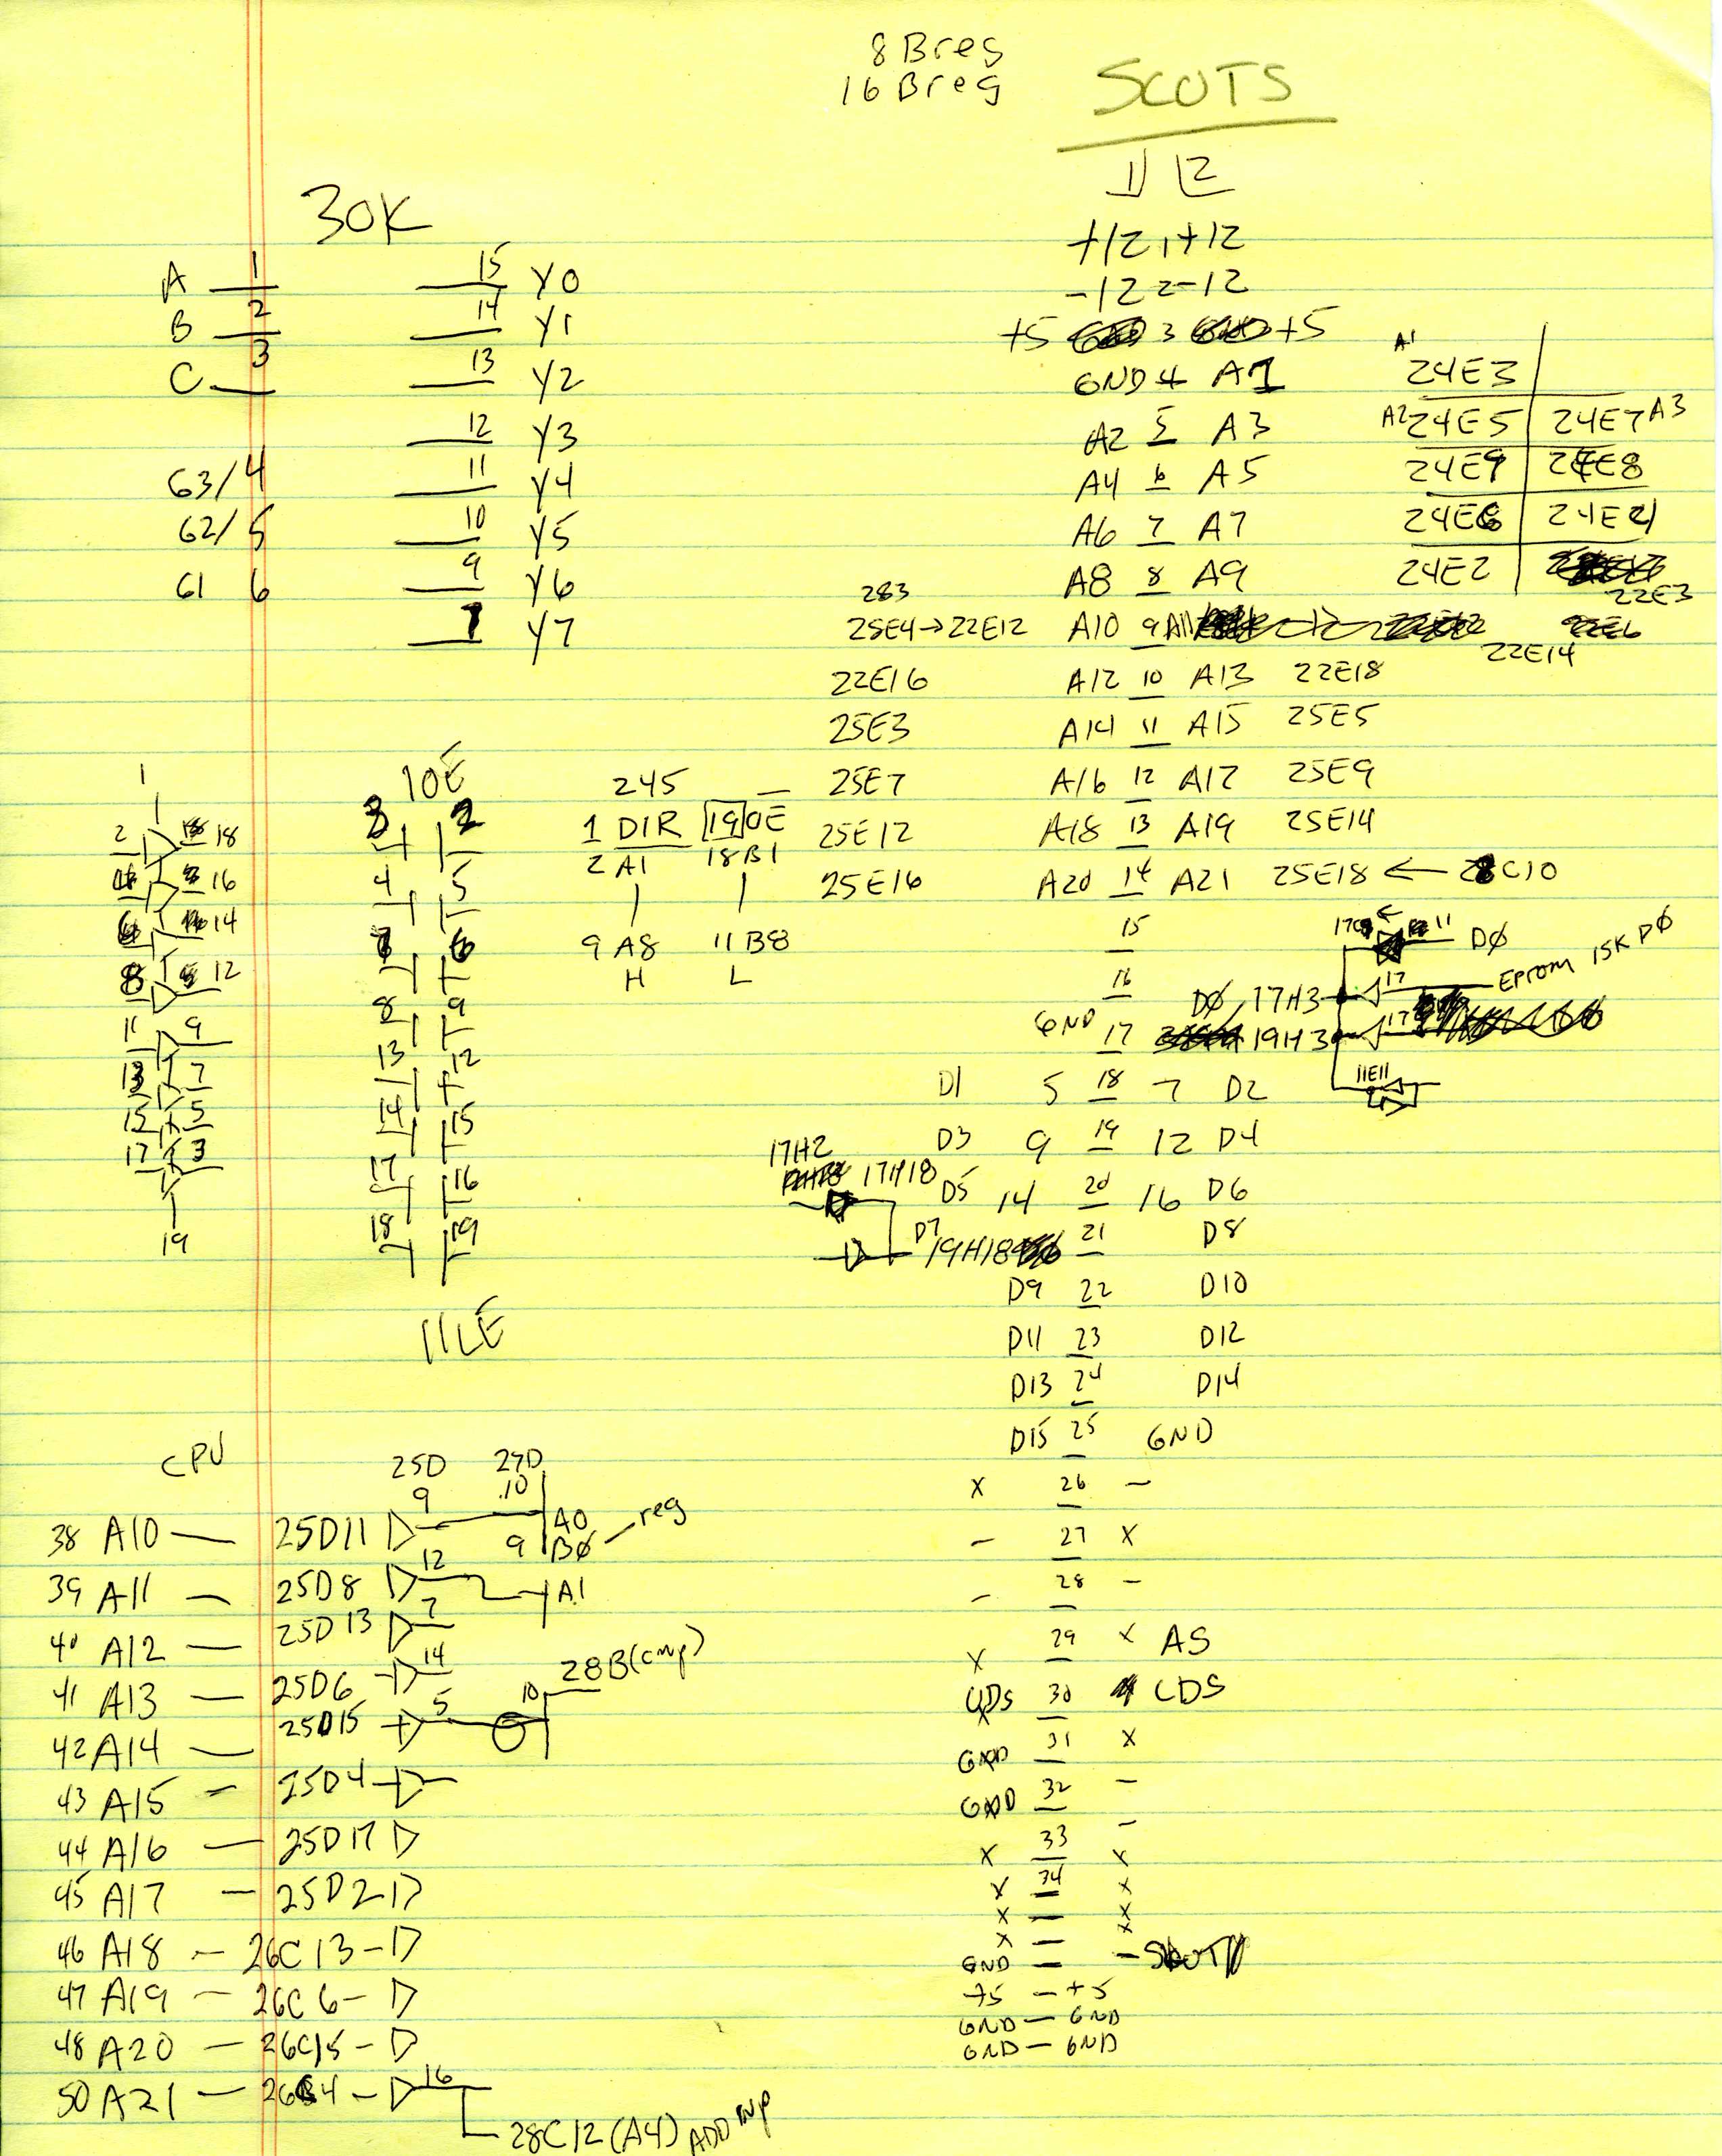 8 Breg
16 Breg
SCOTS
30K
A 1
B 2
C 3
15 Y0
14 Y1
13 Y2
12 Y3
11 Y4
10 Y5
9 Y6
7 Y7
G3/4
G2/5
G1 6
+12 1 +12
-12 2 -12
+5 3 +5
GND 4 A1
A2 5 A3
A4 6 A5
A6 7 A7
A8 8 A9
A1
24E3
A2 24E5 24E7 A3
24E9 24E8
24E6 24E4
24E2
22E3
283
25E4→22E12 A10 9 A11
22E6
22E14
22E16 A12 10 A13 22E18
25E3 A14 11 A15 25E5
25E7 A16 12 A17 25E9
25E12 A18 13 A19 25E14
25E16 A20 14 A21 25E18 ← 28C10
1
2 18
4 16
6 14
8 12
11 9
13 7
15 5
17 3
19
10E
3 2
4 5
7 6
8 9
13 12
14 15
17 16
18 19
11LE
245
1 DIR 19 OE
2 A1 18 B1
9 A8 11 B8
H L
15
16
GND 17
11 DØ
DØ 17H3 17 EPROM 15K DØ
19H3 17
11E11
D1 5 18 7 D2
D3 9 19 12 D4
D5 14 20 16 D6
17H2
17H18
D7
19H18 21 D8
D9 22 D10
D11 23 D12
D13 24 D14
D15 25 GND
X 26 -
- 27 X
- 28 -
X 29 X AS
UDS 30 LDS
GND 31 X
GND 32 -
-
X 33 X
X 34 X
X - X
X - X
GND - -
+5 - +5
GND - GND
GND - GND
CPU
25D 27D
38 A10 — 25D11 9 10 A0
9 BØ — reg
39 A11 — 25D8 12 A1
40 A12 — 25D13 7
41 A13 — 25D6 14
42 A14 — 25D15 5 10 28B(cmp)
43 A15 — 25D4
44 A16 — 25D17
45 A17 — 25D2
46 A18 — 26C13
47 A19 — 26C6
48 A20 — 26C15
50 A21 — 26C4 16
28C12 (A4) ADD inp